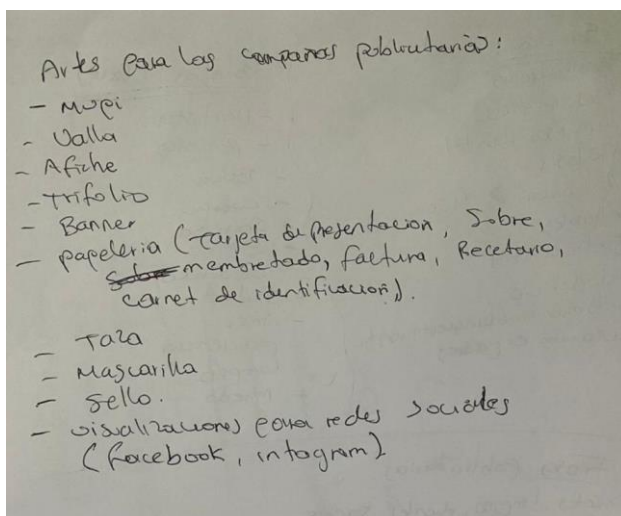 Artes para las campañas publicitarias:
- Mupi
- Valla
- Afiche
- Trifolio
- Banner
- papeleria (Tarjeta de presentacion, Sobre,
membretado, factura, Recetario,
carnet de identificacion).
- Taza
- Mascarilla
- Sello.
- visualizaciones para redes sociales
(facebook, intagram)